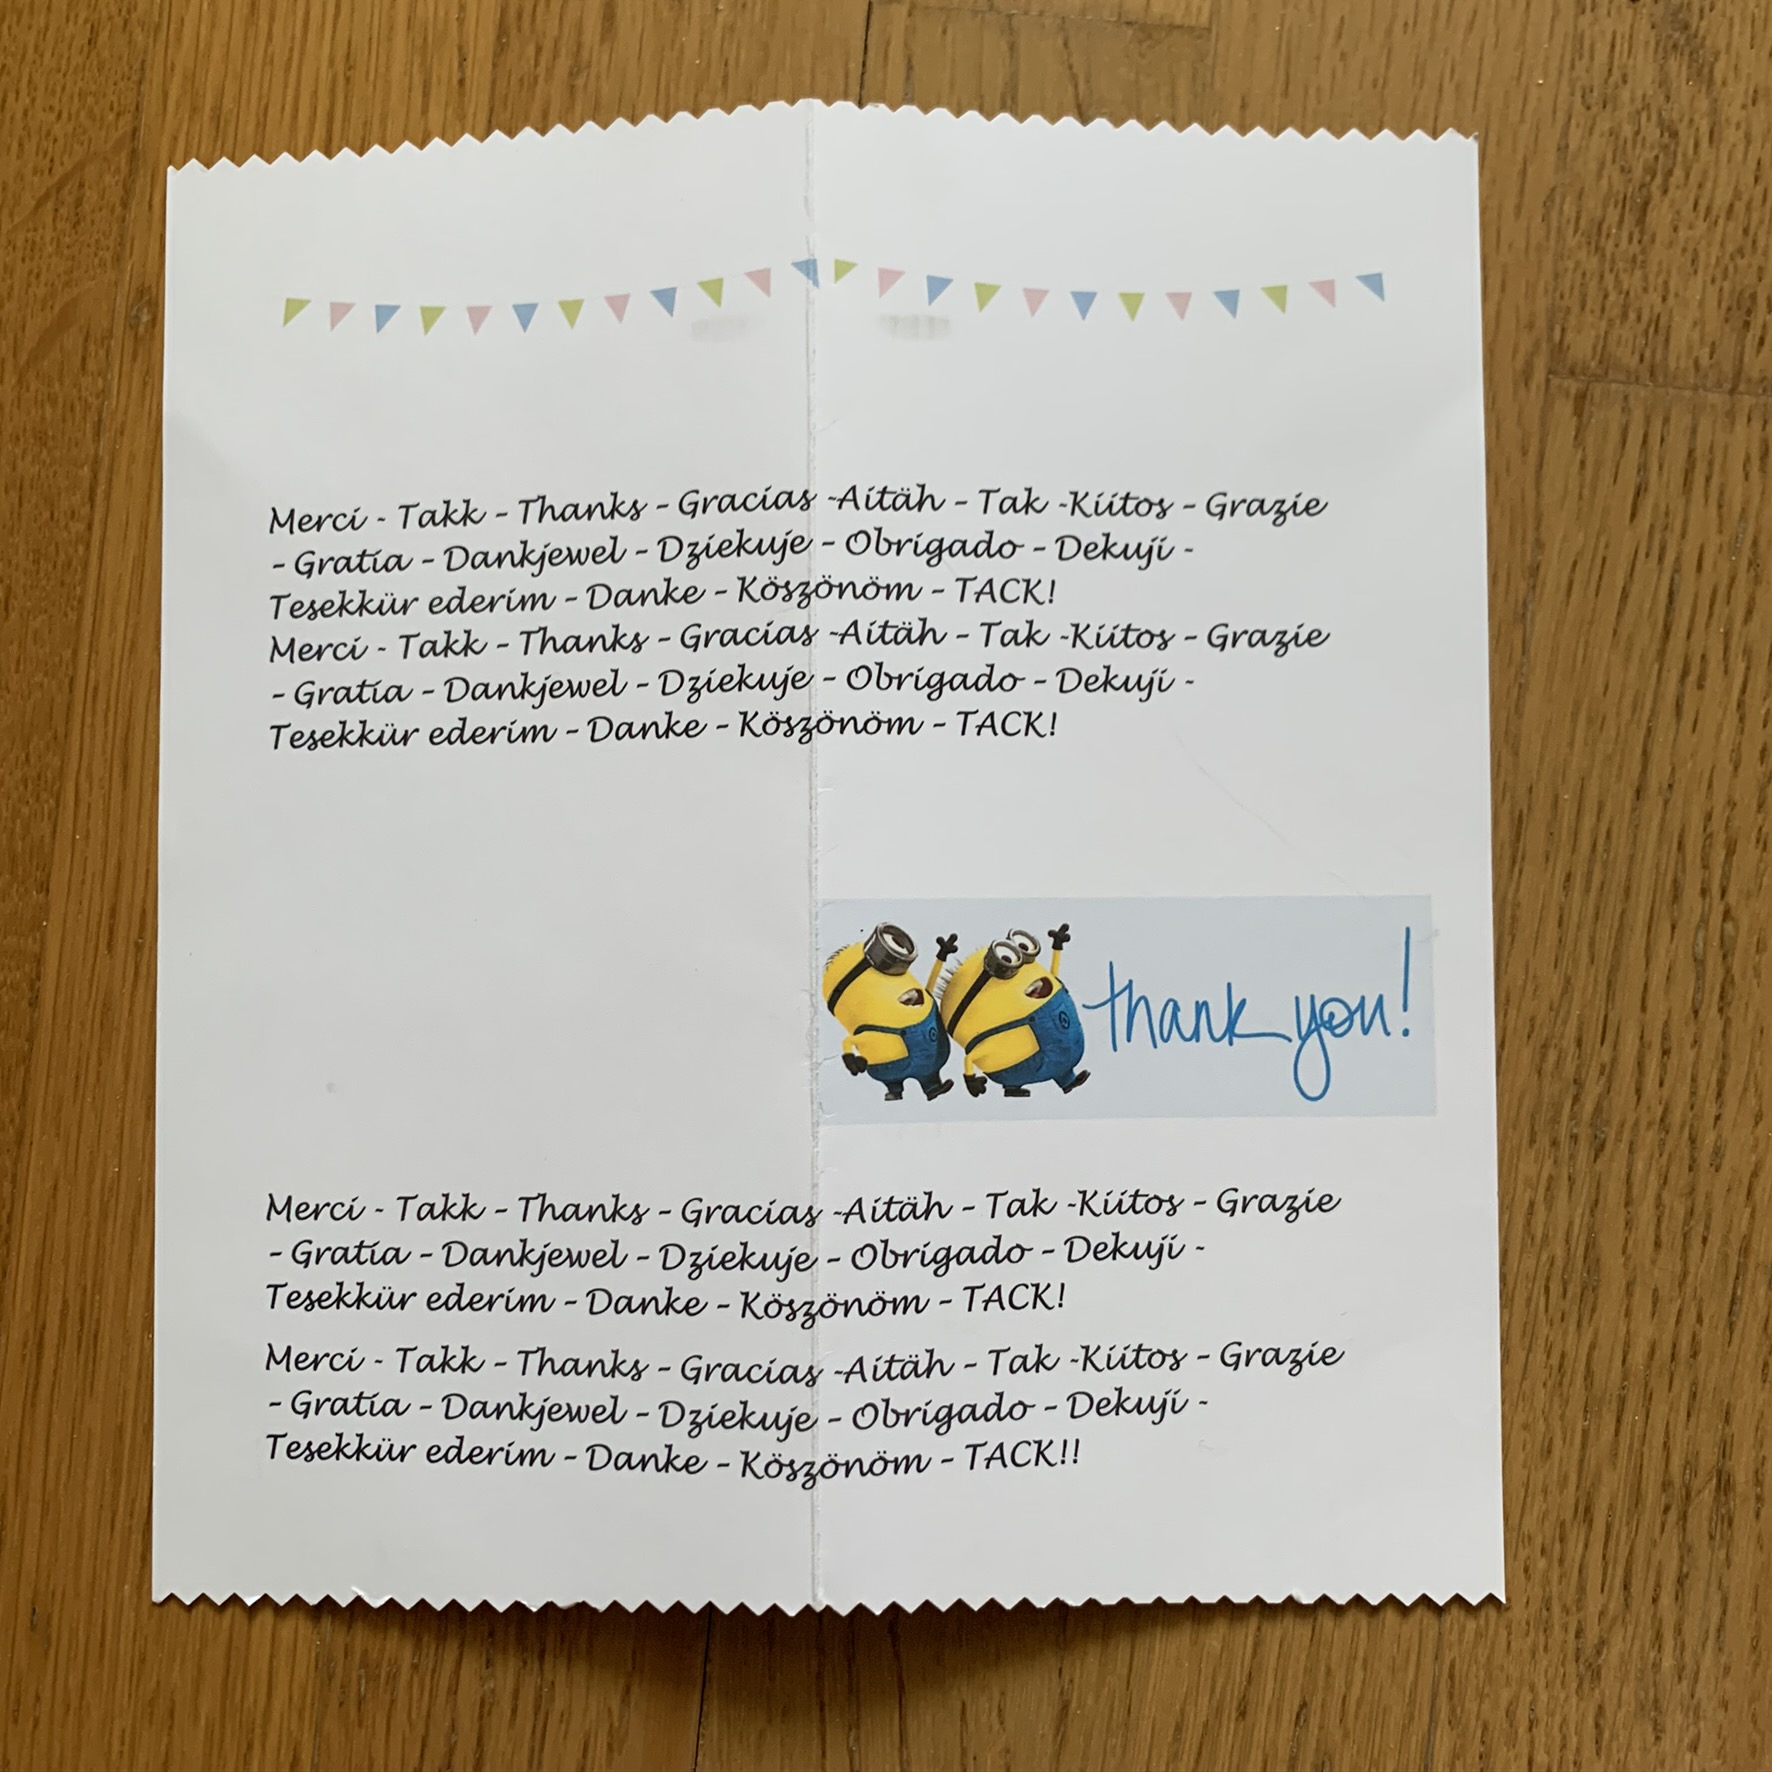 Merci - Takk – Thanks – Gracias -Aitäh – Tak -Kiitos – Grazie
– Gratia – Dankjewel – Dziekuje – Obrigado – Dekuji -
Tesekkür ederim – Danke – Köszönöm – TACK!
Merci - Takk – Thanks – Gracias -Aitäh – Tak -Kiitos – Grazie
– Gratia – Dankjewel – Dziekuje – Obrigado – Dekuji -
Tesekkür ederim – Danke – Köszönöm – TACK!
thank you!
Merci - Takk – Thanks – Gracias -Aitäh – Tak -Kiitos – Grazie
– Gratia – Dankjewel – Dziekuje – Obrigado – Dekuji -
Tesekkür ederim – Danke – Köszönöm – TACK!
Merci - Takk – Thanks – Gracias -Aitäh – Tak -Kiitos – Grazie
– Gratia – Dankjewel – Dziekuje – Obrigado – Dekuji -
Tesekkür ederim – Danke – Köszönöm – TACK!!